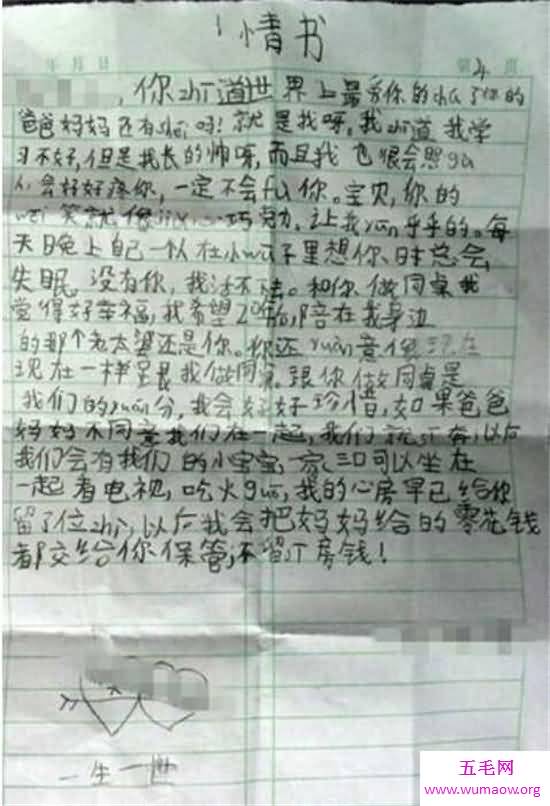 情书
年 月 日
第 页
,你zhī道世界上最爱你的chú了你的
爸爸妈妈还有shéi吗!就是我呀,我zhī道我学
习不好,但是我长的帅呀,而且我也很会照gù
会好好疼你,一定不会fù你。宝贝,你的
笑就像巧克力,让我yūn乎乎的。每
天晚上自己一个人在小wū子里想你、时总会
失眠。没有你,我活不去。和你做同桌我
觉得好幸福,我希望20年后,陪在我身边
的那个老太婆还是你。你还yuàn意像现在
现在一样跟我做同桌,跟你做同桌是
我们的yuán分,我会好好珍惜,如果爸爸
妈妈不同意我们在一起,我们就
以后
我们会有我们的小宝宝,一家三口可以坐在
一起看电视,吃火guō,我的心房早已给你
留了位zhi,以后我会把妈妈给的零花钱
都交给你保管,不留房钱!
一生一世
五毛网
www.wumaow.org